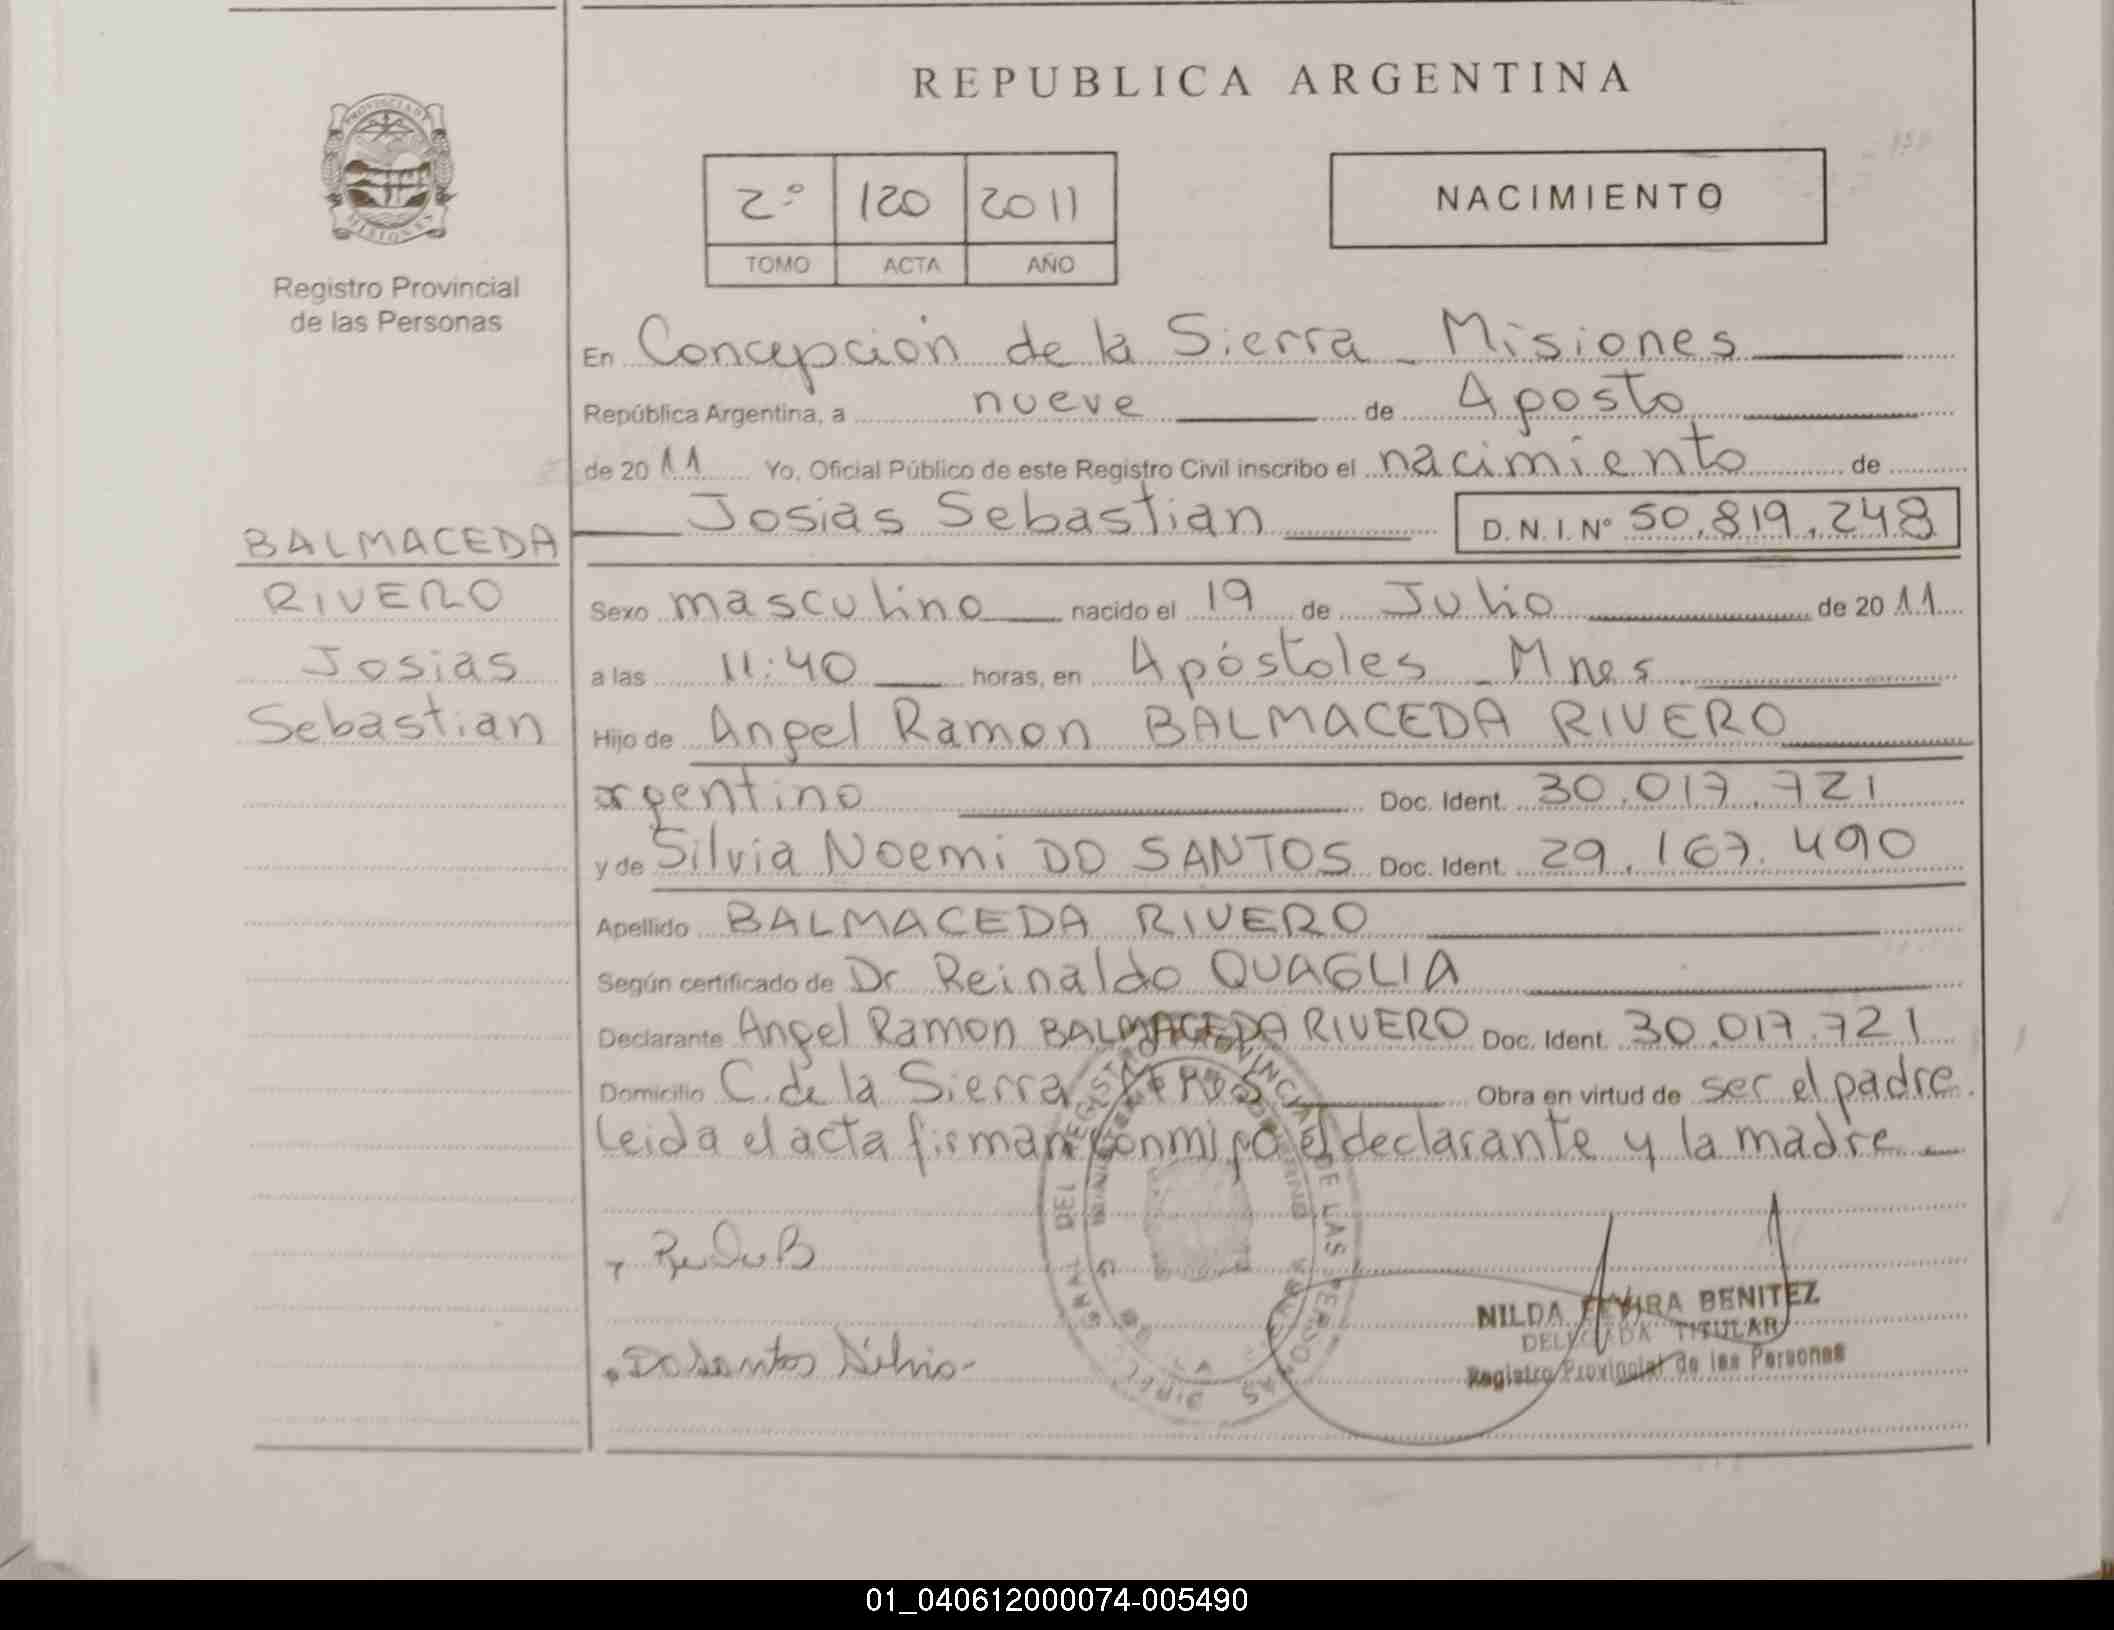 REPUBLICA ARGENTINA
PROVINCIA DE
MISIONES
Registro Provincial
de las Personas
2º 120 2011
TOMO ACTA AÑO
NACIMIENTO
En Concepción de la Sierra - Misiones
República Argentina, a nueve de Agosto
de 2011 Yo, Oficial Público de este Registro Civil inscribo el nacimiento de
Josias Sebastian D.N.I.Nº 50.819.248
BALMACEDA
RIVERO
Josias
Sebastian
Sexo masculino nacido el 19 de Julio de 2011
a las 11:40 horas, en Apóstoles - Mnes
Hijo de Angel Ramon BALMACEDA RIVERO
argentino Doc. Ident. 30.017.721
y de Silvia Noemi DO SANTOS Doc. Ident. 29.167.490
Apellido BALMACEDA RIVERO
Según certificado de Dr Reinaldo QUAGLIA
Declarante Angel Ramon BALMACEDA RIVERO Doc. Ident. 30.017.721
Domicilio C. de la Sierra Obra en virtud de ser el padre.
Leida el acta firman conmigo el declarante y la madre
Do Santos Silvia
NILDA BENITEZ
DELEGADA TITULAR
Registro Provincial de las Personas
01_040612000074-005490